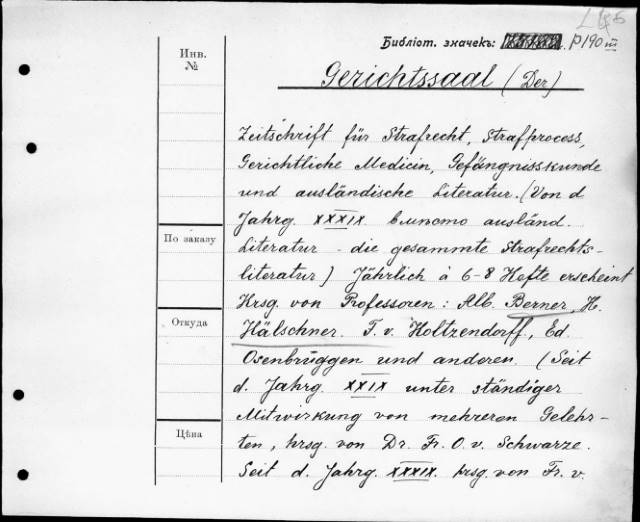 Библіот. значекъ: P190 III
Инв. №
Gerichtssaal (Der)
Zeitschrift für Strafrecht, Strafprocess,
Gerichtliche Medicin, Gefängnisskunde
und ausländische Literatur. (Von d
Jahrg. XXXIX вмѣсто ausländ.
По заказу
Literatur - die gesammte Strafrechts-
literatur) Jährlich à 6-8 Hefte erscheint
Hrsg. von Professoren: Alb. Berner, H.
Откуда
Hälschner. F. v. Holtzendorff, Ed.
Osenbrüggen und anderen. (Seit
d. Jahrg. XXIX unter ständiger
Mitwirkung von mehreren Gelehr-
Цѣна
ten, hrsg. von Dr. Fr. O. v. Schwarze.
Seit d. Jahrg. XXXIX. hrsg. von Fr. v.